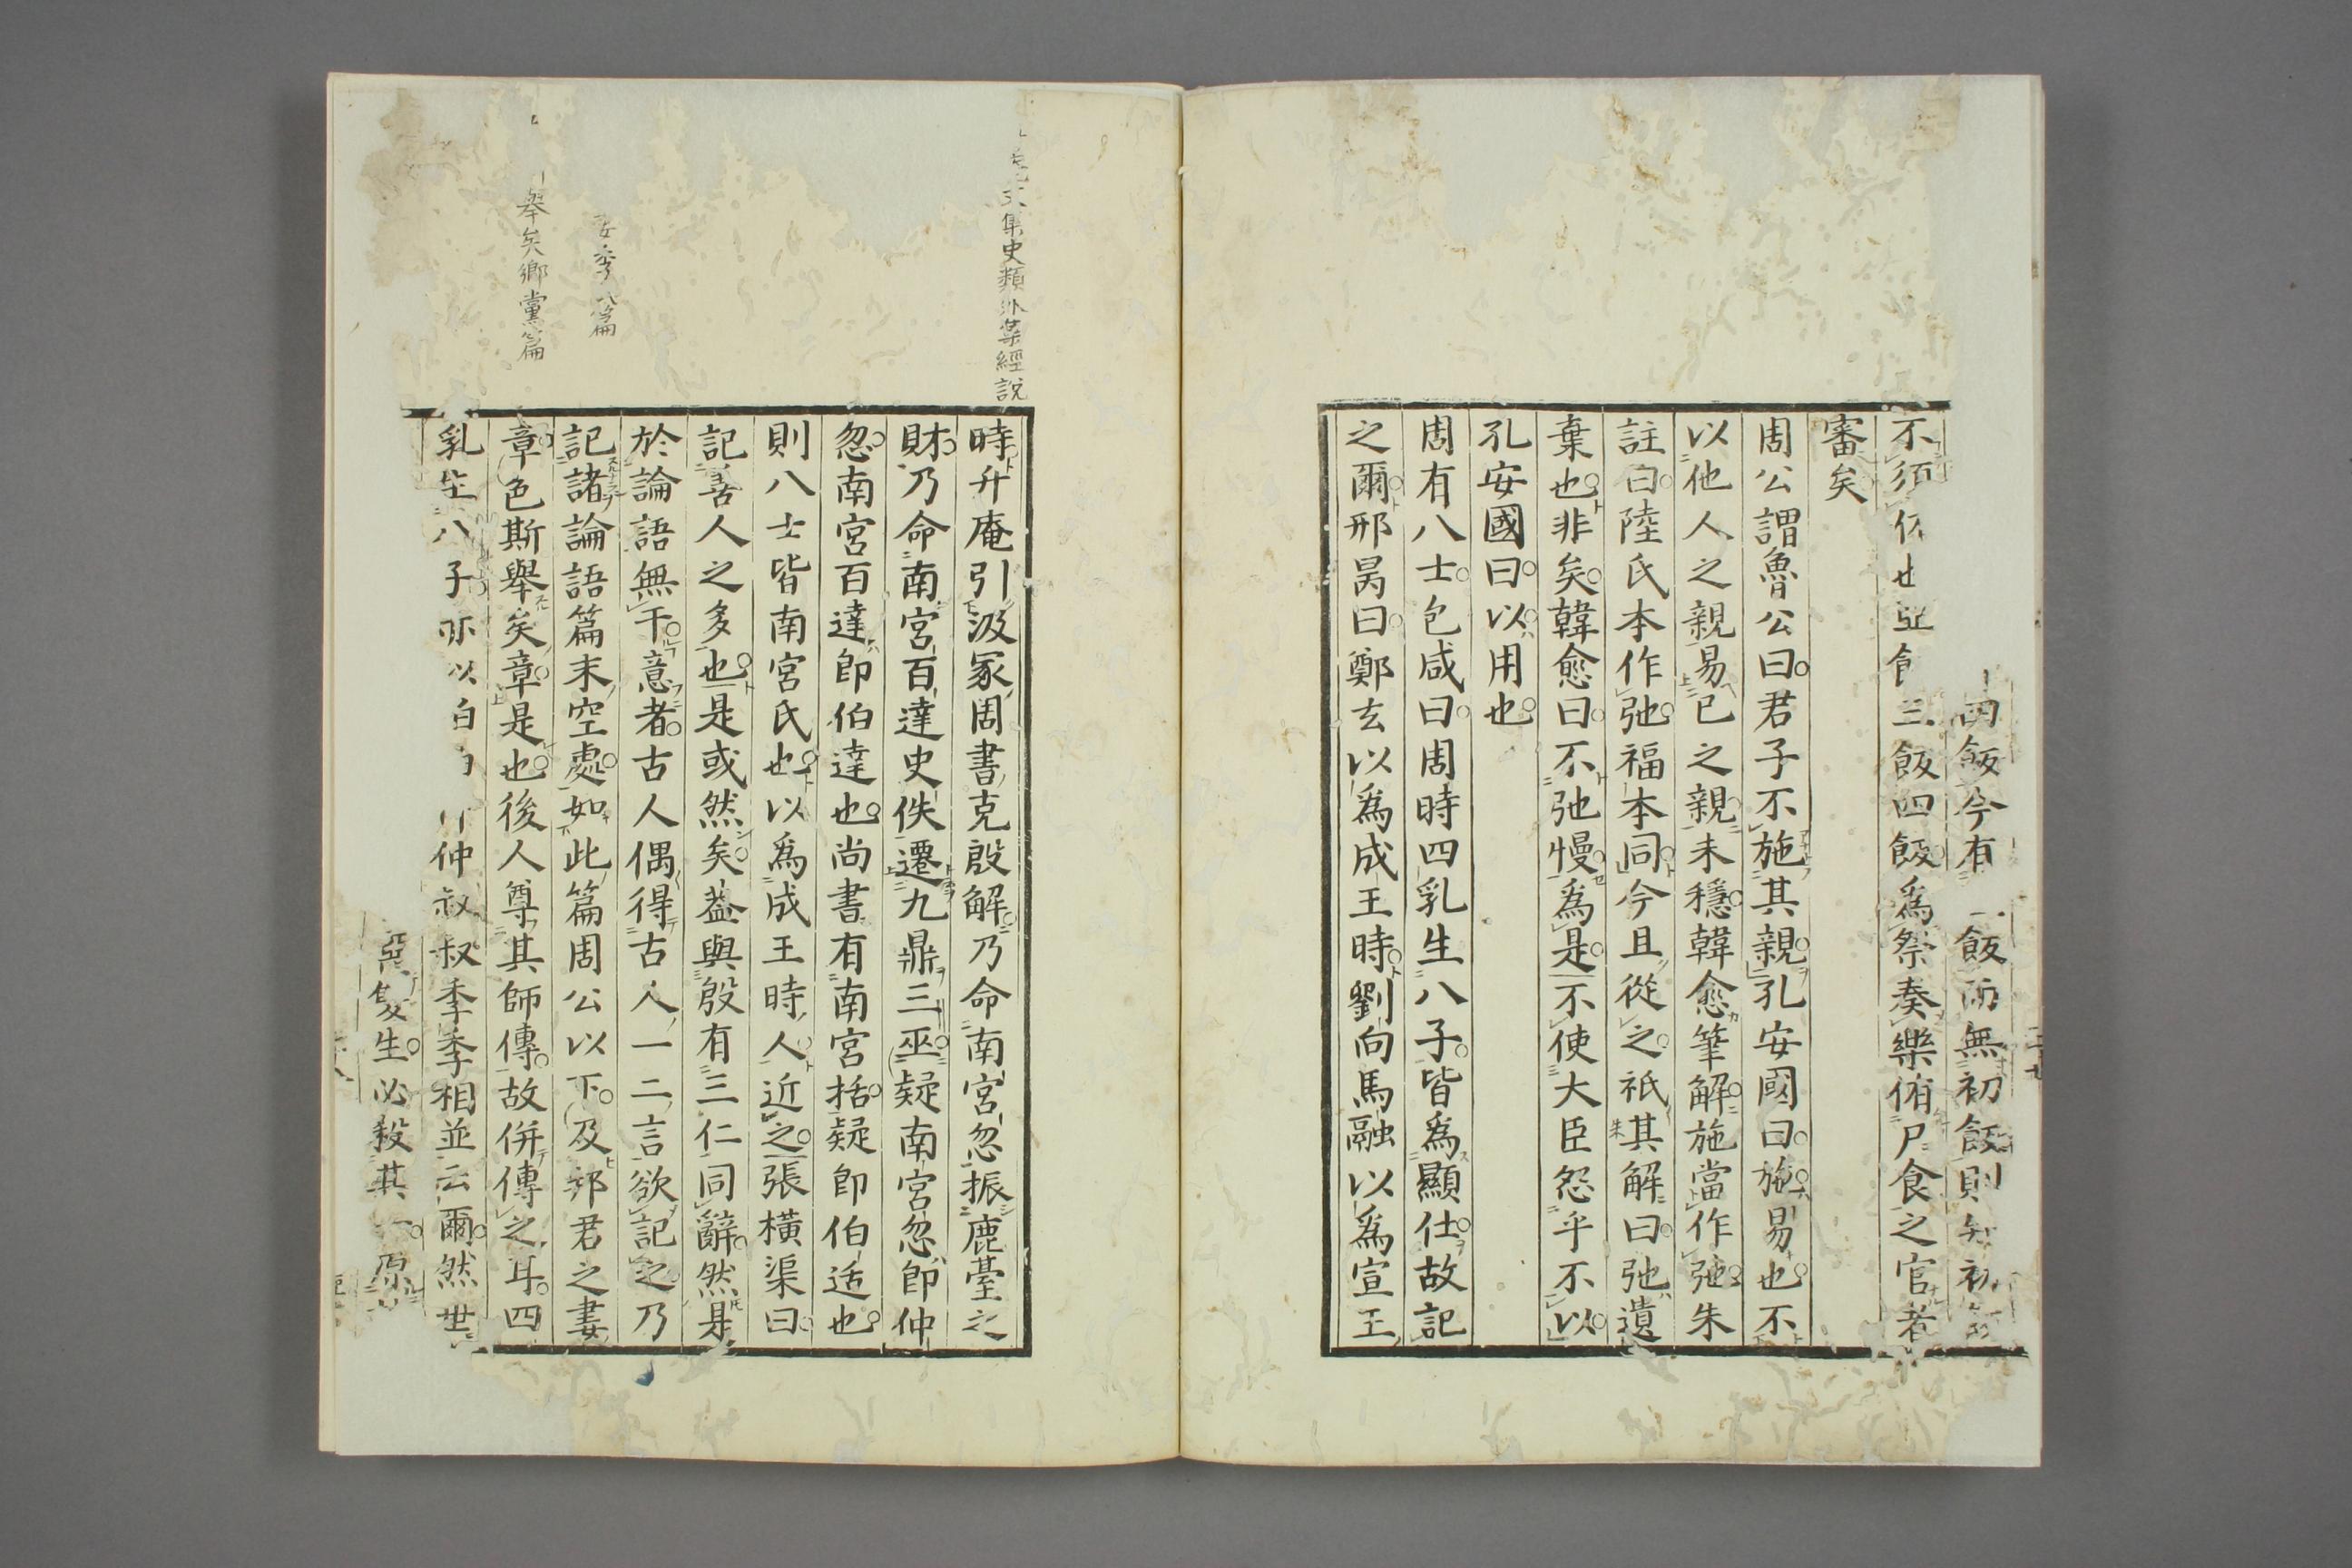 四飯今有 飯而無初飯則
不須 也亞 三飯四飯爲祭奏樂侑尸食之官者
審矣
周公謂魯公曰君子不施其親孔安國曰施易也不
以他人之親易已之親未穩韓愈筆解施當作弛朱
註曰陸氏本作弛福本同今且從之祇其解曰弛遺
棄也非矣韓愈曰不弛慢爲是不使大臣怨乎不以
孔安國曰以用也
周有八士包咸曰周時四乳生八子皆爲顯仕故記
之爾邢昺曰鄭玄以爲成王時劉向馬融以爲宣王
文集史類外集經說
時升庵引汲冢周書克殷解乃命南宮忽振鹿臺之
財乃命南宮百達史佚遷九鼎三巫疑南宮忽卽仲
忽南宮百達卽伯達也尚書有南宮括疑卽伯适也
則八士皆南宮氏也以爲成王時人近之張橫渠曰
記善人之多也是或然矣蓋與殷有三仁同辭然是
於論語無干意者古人偶得古人一二言欲記之乃
季氏篇
記諸論語篇末空處如此篇周公以下及邦君之妻
舉矣鄉黨篇
章色斯舉矣章是也後人尊其師傳故併傳之耳四
乳生八子亦以 仲叔叔季季相並云爾然世
惡雙生必殺其一原